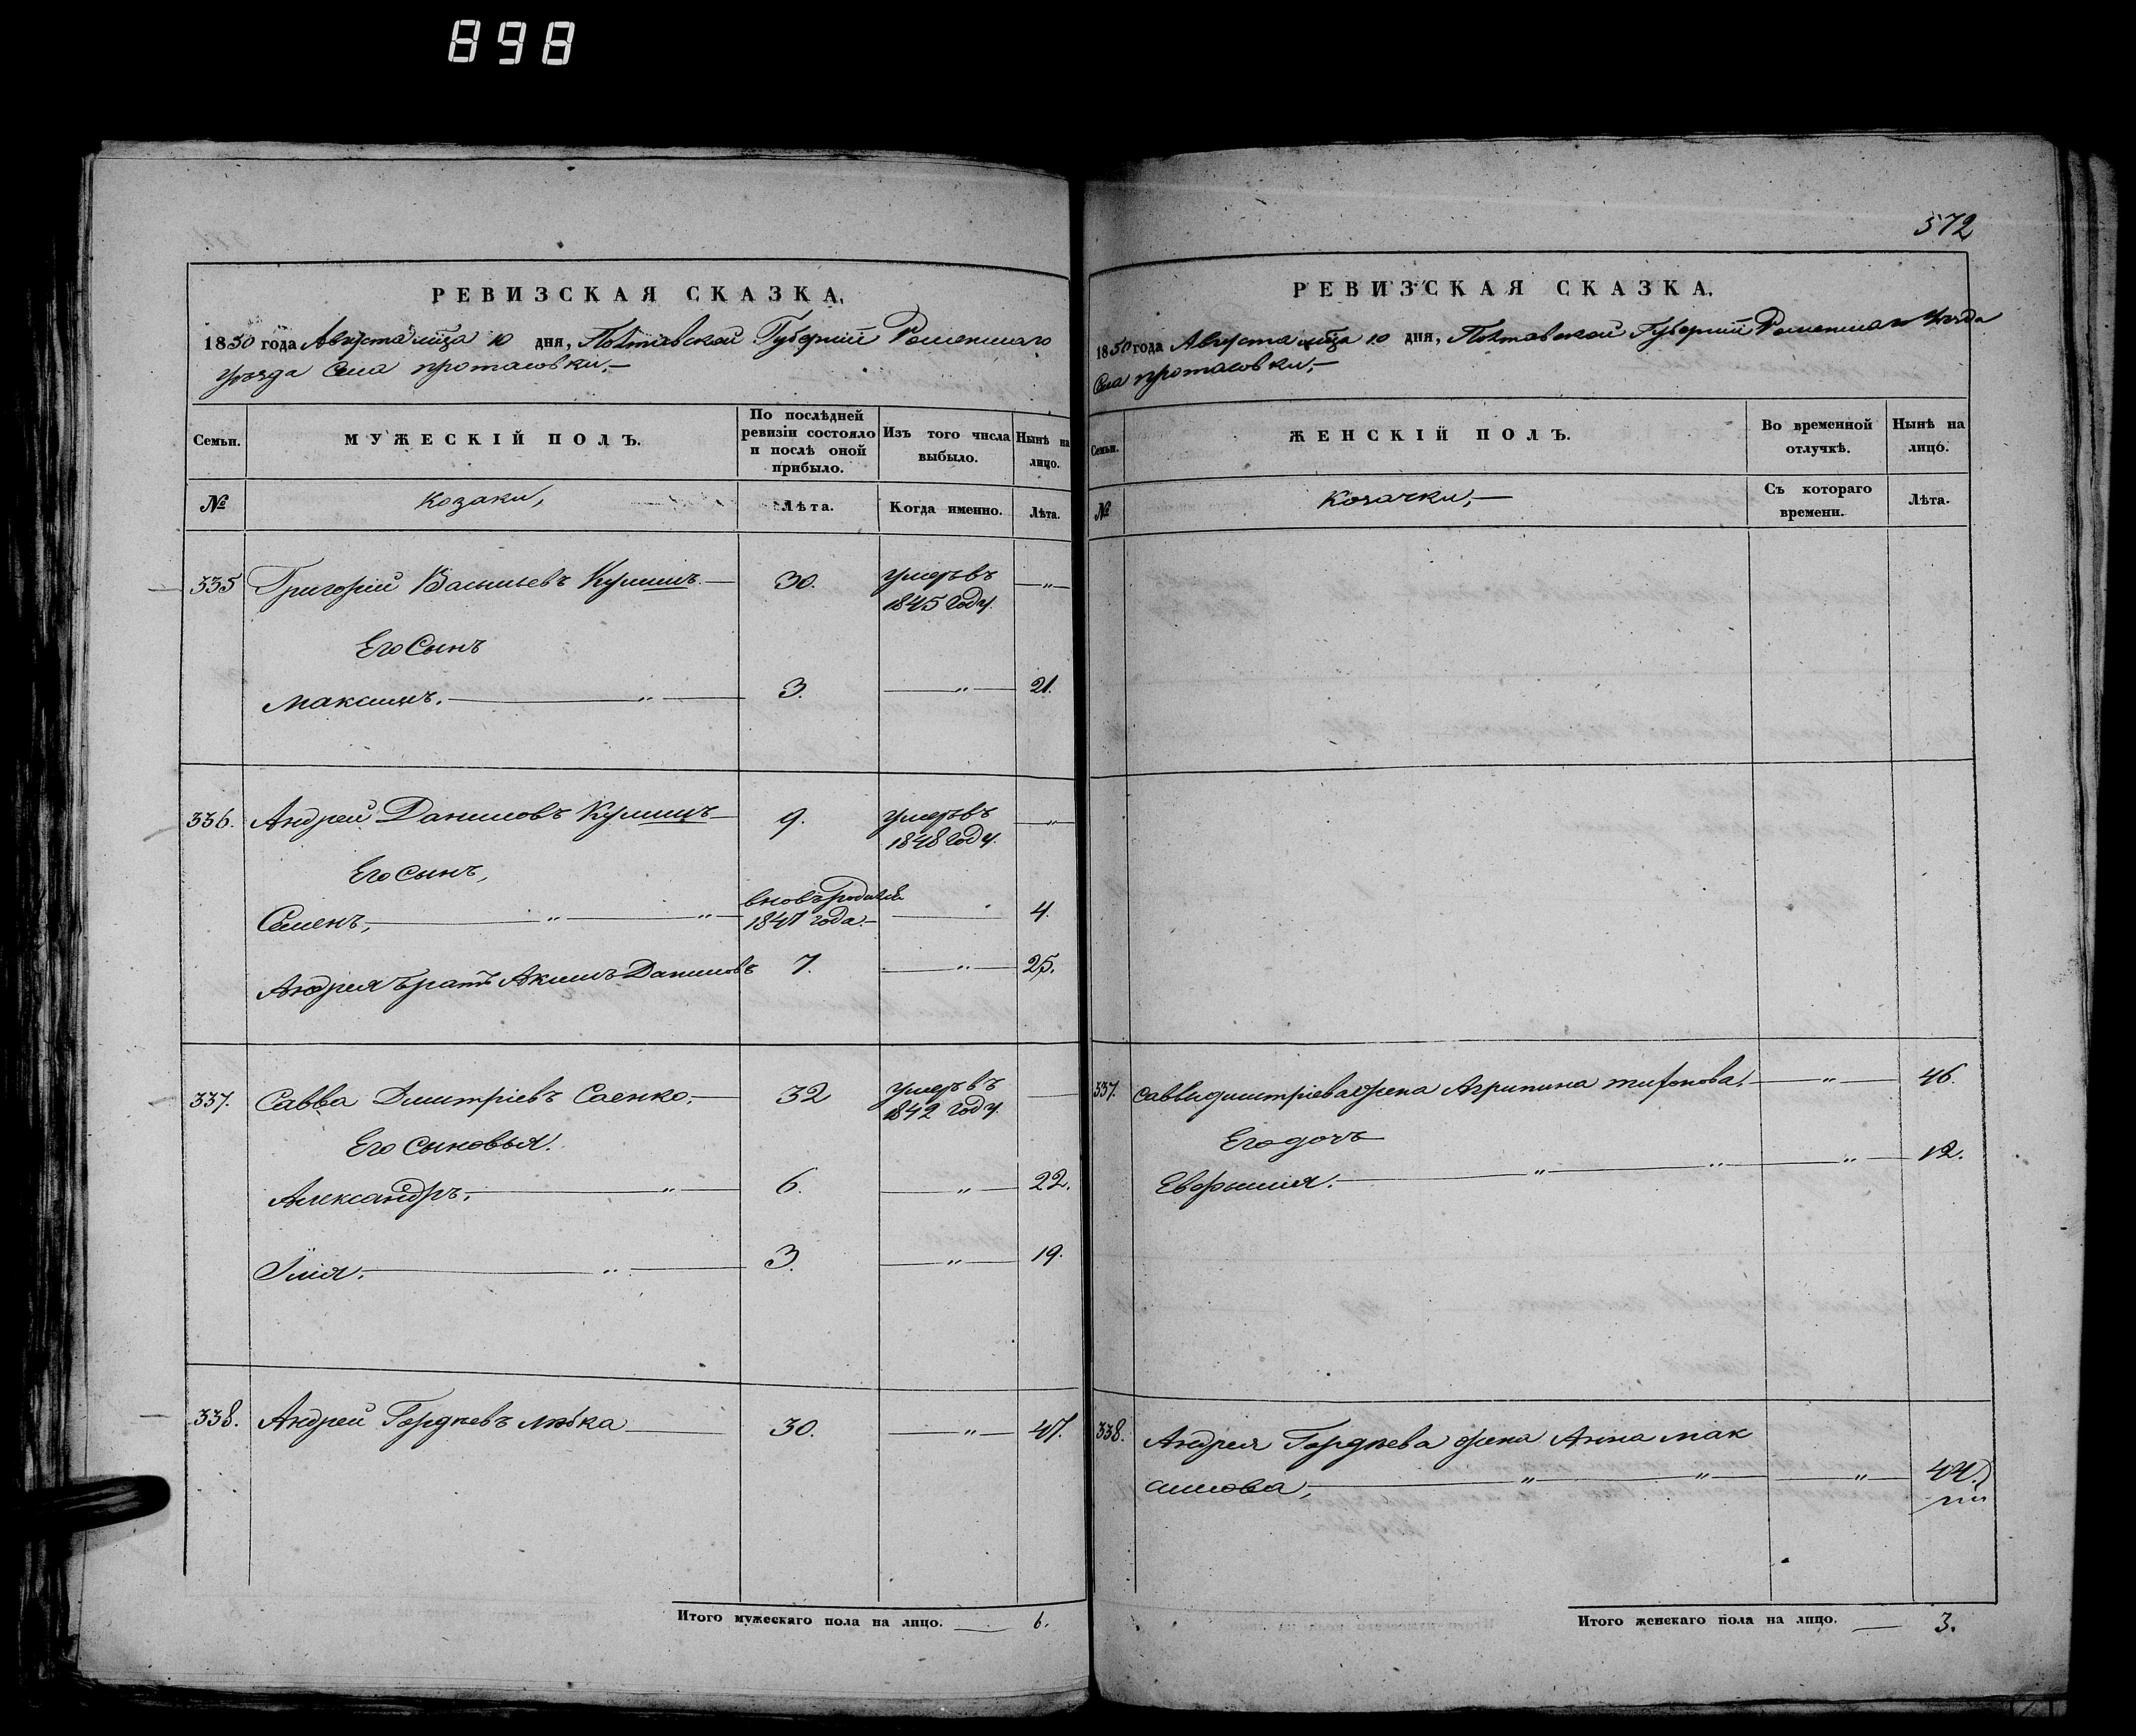 898
572
РЕВИЗСКАЯ СКАЗКА.
1850 года Августа мца 10 дня, Полтавской Губернии Роменского
уѣзда Села протасовки,
Семьи. МУЖЕСКІЙ ПОЛЪ. По послѣдней ревизіи состояло и послѣ оной прибыло. Изъ того числа выбыло. Нынѣ на лицо.
№ Козаки, Лѣта. Когда именно. Лѣта.
335 Григорій Васильевъ 30. умеръ въ 1845 году. "
Его Сынъ
Максимъ. " 3. " 21.
336. Андрей Даниловъ 9. умеръ въ 1848 году. "
Его сынъ,
Семенъ, " " вновь родился 1847 года. 4.
Андрея братъ Акимъ Даниловъ 7. " 25.
337. Савва Дмитріевъ Саенко. 32 умеръ въ 1842 году.
Его сыновья.
Александръ. " 6. " 22.
Илія. " 3. " 19.
338. Андрей Гордѣевъ 30. " 47.
Итого мужескаго пола на лицо. 6.
РЕВИЗСКАЯ СКАЗКА.
1850 года Августа мца 10 дня, Полтавской Губернии Роменского Уѣзда
Села протасовки,
Семьи. ЖЕНСКІЙ ПОЛЪ. Во временной отлучкѣ. Нынѣ на лицо.
№ Козачки, Съ котораго времени. Лѣта.
337. Саввы дмитріева жена Агрипина " 46.
Его дочь
Евфимія. " " " 12.
338. Андрея Гордѣева жена Анна мак
симова, " " " 44.
Итого женскаго пола на лицо. 3.